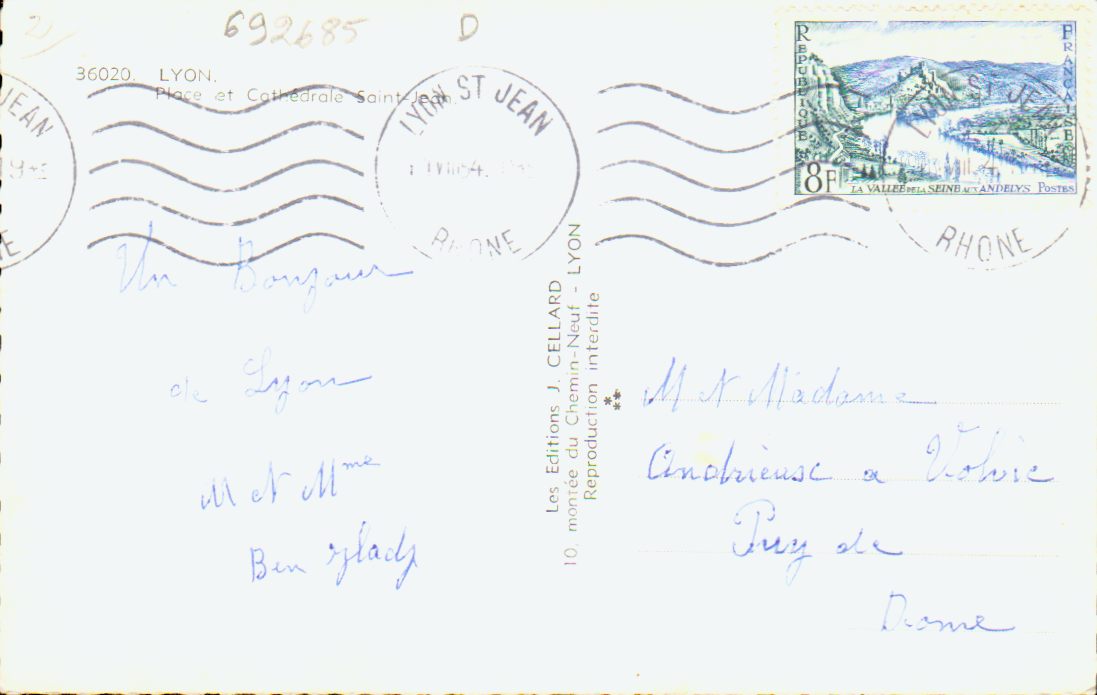 692685 D
36020. LYON.
Place et Cathédrale Saint-Jean.
JEAN
LYON ST JEAN
RHONE
LYON ST JEAN
RHONE
REPUBLIQUE
FRANCAISE
8F
LA VALLEE DE LA SEINE AUX ANDELYS POSTES
Un Bonjour
de Lyon
M et Mme
Ben
Les Editions J. CELLARD
10, montée du Chemin-Neuf - LYON
Reproduction interdite
M et Madame
Andrieux a Volvic
Puy de
Dome